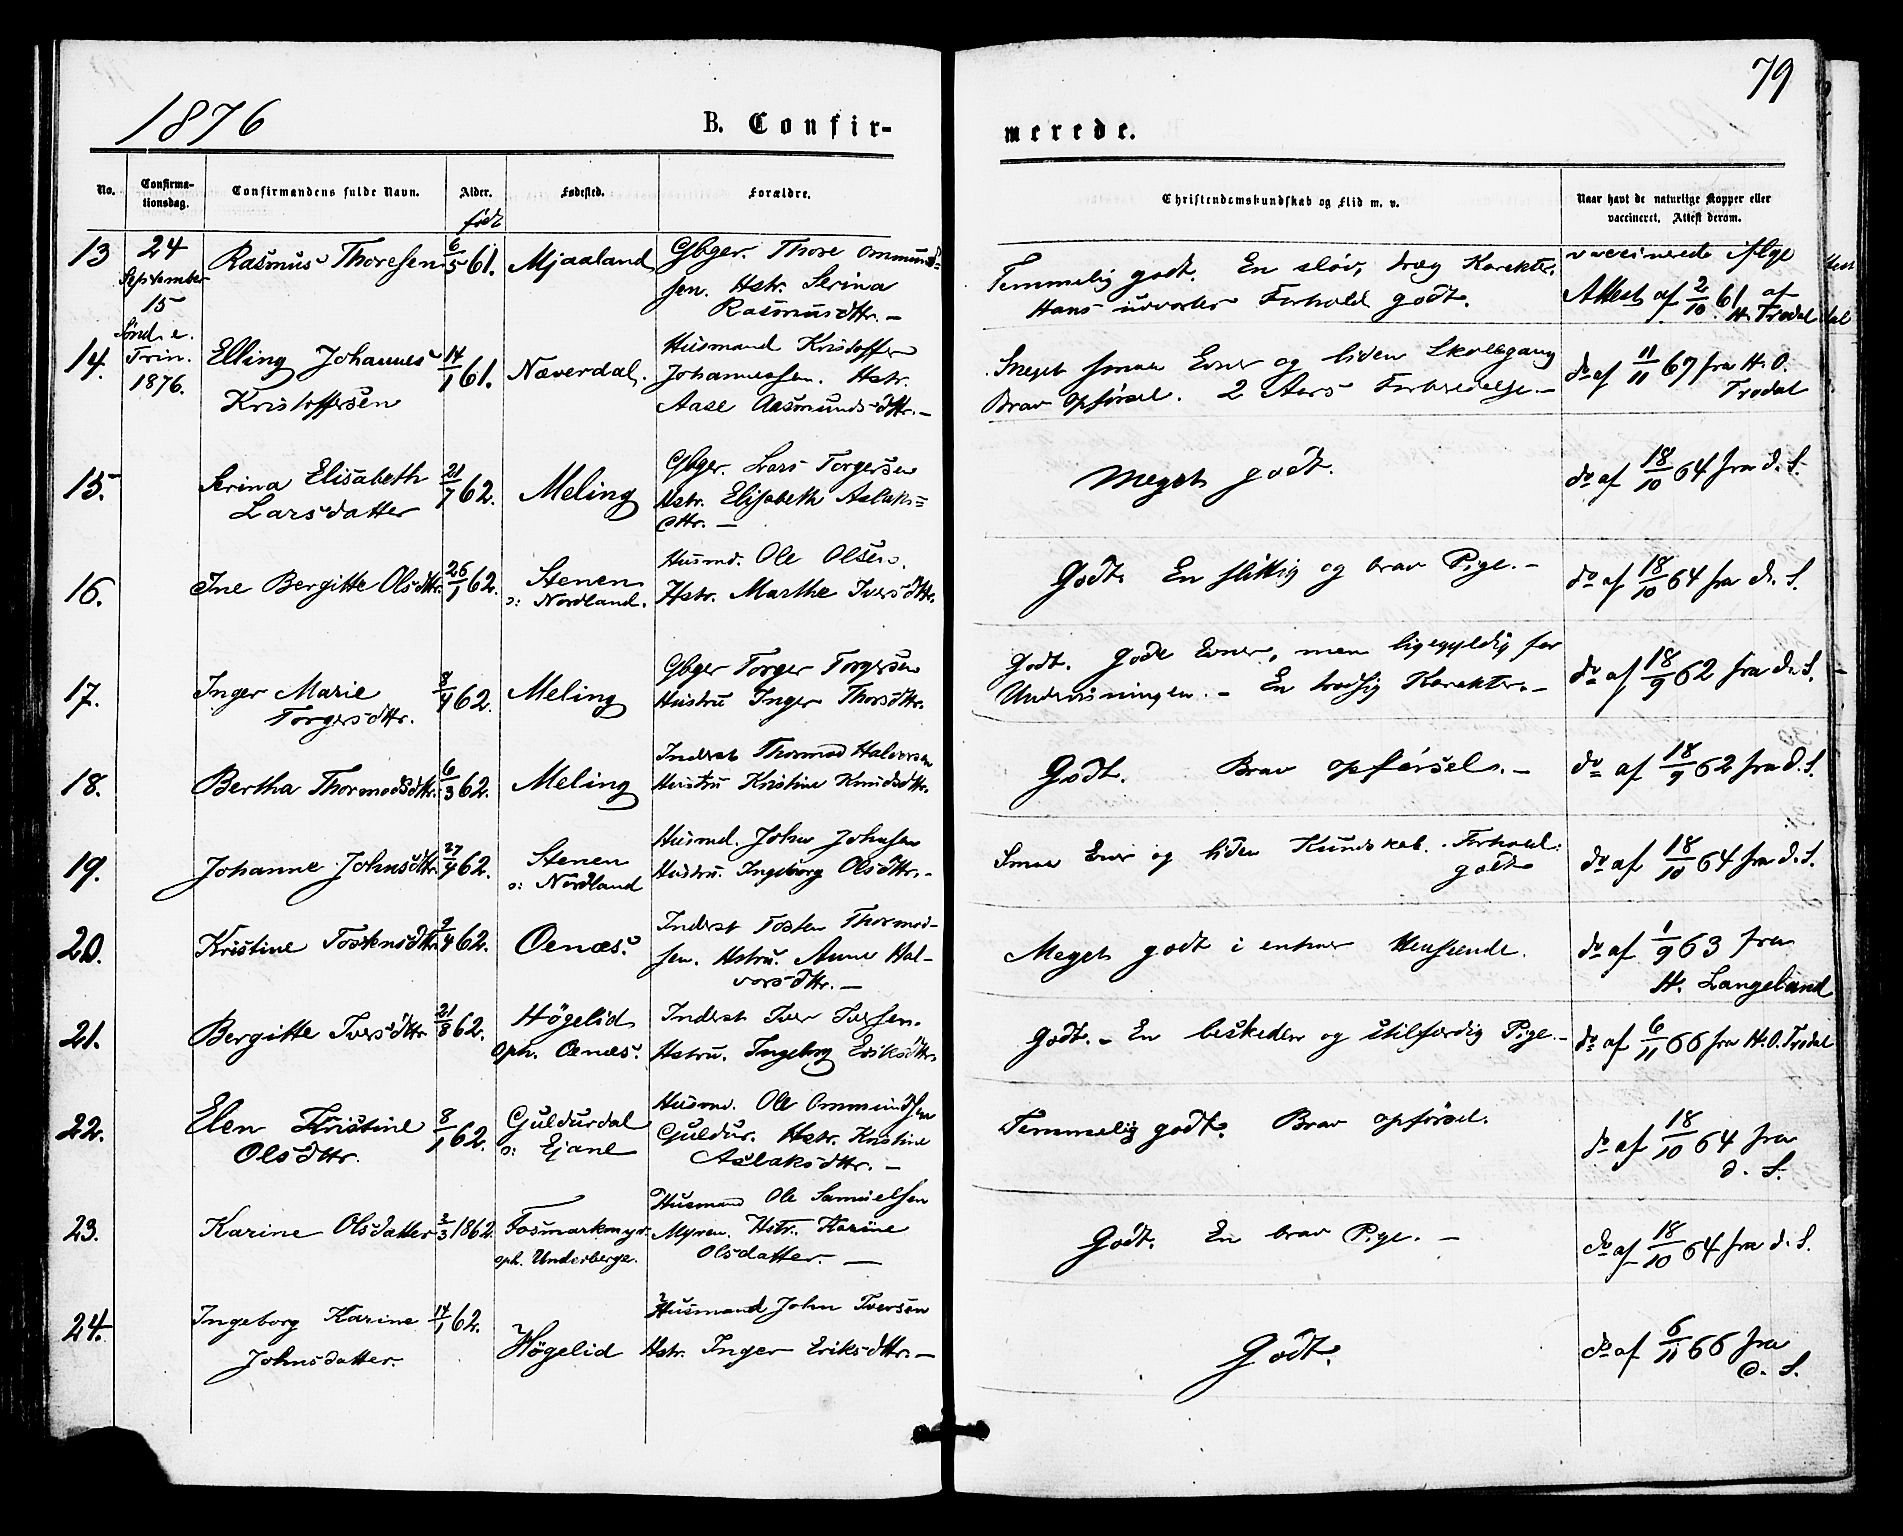 79
1876
B. Confir-
merede.
No.
Confirma-
tionsdag.
Confirmandens fulde Navn.
Alder.
født
Fødested.
Forældre.
Christendomskundskab og Flid m. v.
Naar havt de naturlige Kopper eller
vaccineret. Attest derom.
24
September
15
Sønd. e.
Trin.
1876.
13
Rasmus Thoresen
6/5 61.
Mjaaland
Gbger. Thore Ommund-
sen. Hstr. Serina
Rasmusdttr. —
Temmelig godt. En sløv, træg Karakter.
Hans udvortes Forhold godt.
vaccinerede ifølge
Attest af 2/10 61 af
H. Trodal
14.
Elling Johannes
Kristoffersen
14/1 61.
Næverdal.
Husmand Kristoffer
Johannessen. Hstr.
Aase Aasmundsdttr. —
Meget smaa Evner og liden Skolegang
Brav Opførsel. 2 Aars Forberedelse. —
do af 11/11 67 fra H. O.
Trodal
15.
Serina Elisabeth
Larsdatter
21/7 62.
Meling
Gbger. Lars Torgersen
Hstr. Elisabeth Aslaks=
dttr. —
Meget godt.
do af 18/10 64 fra d. S.
16.
Ine Bergitte Olsdttr.
26/1 62.
Stenen
o: Nordland.
Husmd. Ole Olsen.
Hstr. Marthe Iversdttr.
Godt. En flittig og brav Pige. —
do af 18/10 64 fra d. S.
17.
Inger Marie
Torgersdttr.
62.
Meling
Gbger Torger Torgersen
Hustru Inger Thorsdttr.
Godt. Gode Evner, men ligegyldig for
Undervisningen. — En trodsig Karakter. —
do af 18/9 62 fra d. S. —
18.
Bertha Thormodsdttr.
6/3 62.
Meling
Inderst Thormod Halvorsen
Hustru Kristine Knudsdttr.
Godt. Brav opførsel. —
do af 18/9 62 fra d. S.
19.
Johanne Johnsdttr.
62.
Stenen
o: Nordland
Husmd. John Johnsen
Hustru. Ingeborg Olsdttr. —
Smaa Evner og liden Kundskab. Forhold
godt
do af 18/10 64 fra d. S.
20.
Kristine Tostensdttr.
62.
Oenæs.
Inderst Tosten Thormod-
sen. Hstru. Anne Hal-
vorsdttr. —
Meget godt i enhver Henseende.
do af 1/9 63 fra
H. Langeland
21.
Bergitte Iversdttr
21/8 62.
Högelid
oph. Oenæs.
Inderst Iver Iversen.
Hstru. Ingeborg Eriksdttr.
Godt. — En beskeden og stilfærdig Pige. —
do af 6/11 66 fra H. O. Trodal
22.
Elen Kristine
Olsdttr.
8/1 62.
Guldurdal
o: Ejane
Husmd. Ole Ommundsen
Guldur. Hstr. Kristine
Aslaksdttr. —
Temmelig godt. Brav opførsel.
do af 18/10 64 fra
d. S.
23.
Karine Olsdatter
2/3 1862
Fosmarkmyr.
oph. Underberge.
Husmand Ole Samuelsen
Myren. Hstr. Karine
Olsdatter. —
Godt. En brav Pige. —
do af 18/10 64 fra d. S.
24.
Ingeborg Karine
Johnsdatter.
14/1 62.
Högelid
Husmand John Iversen
Hstr. Inger Eriksdttr. —
Godt.
do af 6/11 66 fra
d. S.